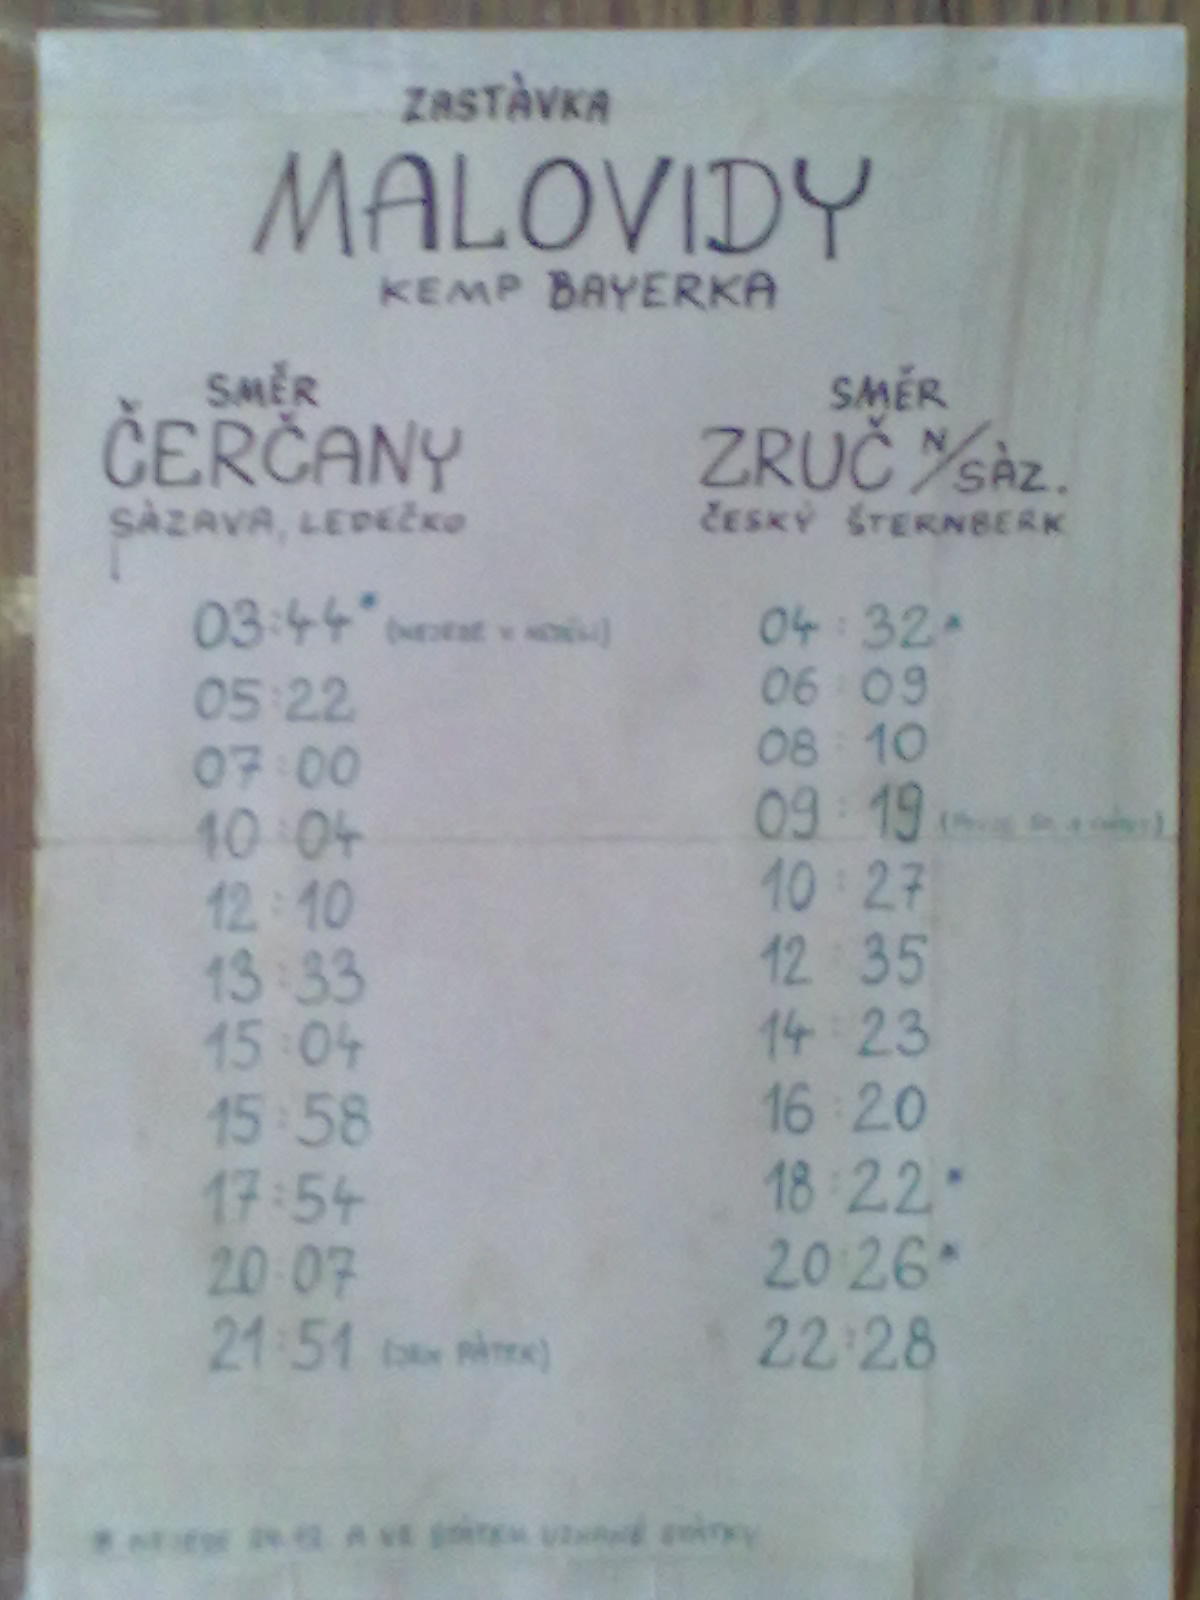 ZASTÀVKA
MALOVIDY
KEMP BAYERKA
SMĚR
ČERČANY
SÀZAVA, LEDEČKO
03:44* (NEJEDE V NEDĚLI)
05:22
07:00
10:04
12:10
13:33
15:04
15:58
17:54
20:07
21:51 (JEN PÀTEK)
SMĚR
ZRUČ N/SÀZ.
ČESKÝ ŠTERNBERK
04:32*
06:09
08:10
09:19
10:27
12:35
14:23
16:20
18:22*
20:26*
22:28
* NEJEDE 24.12. A VE STÀTEM UZNANÉ SVÀTKY